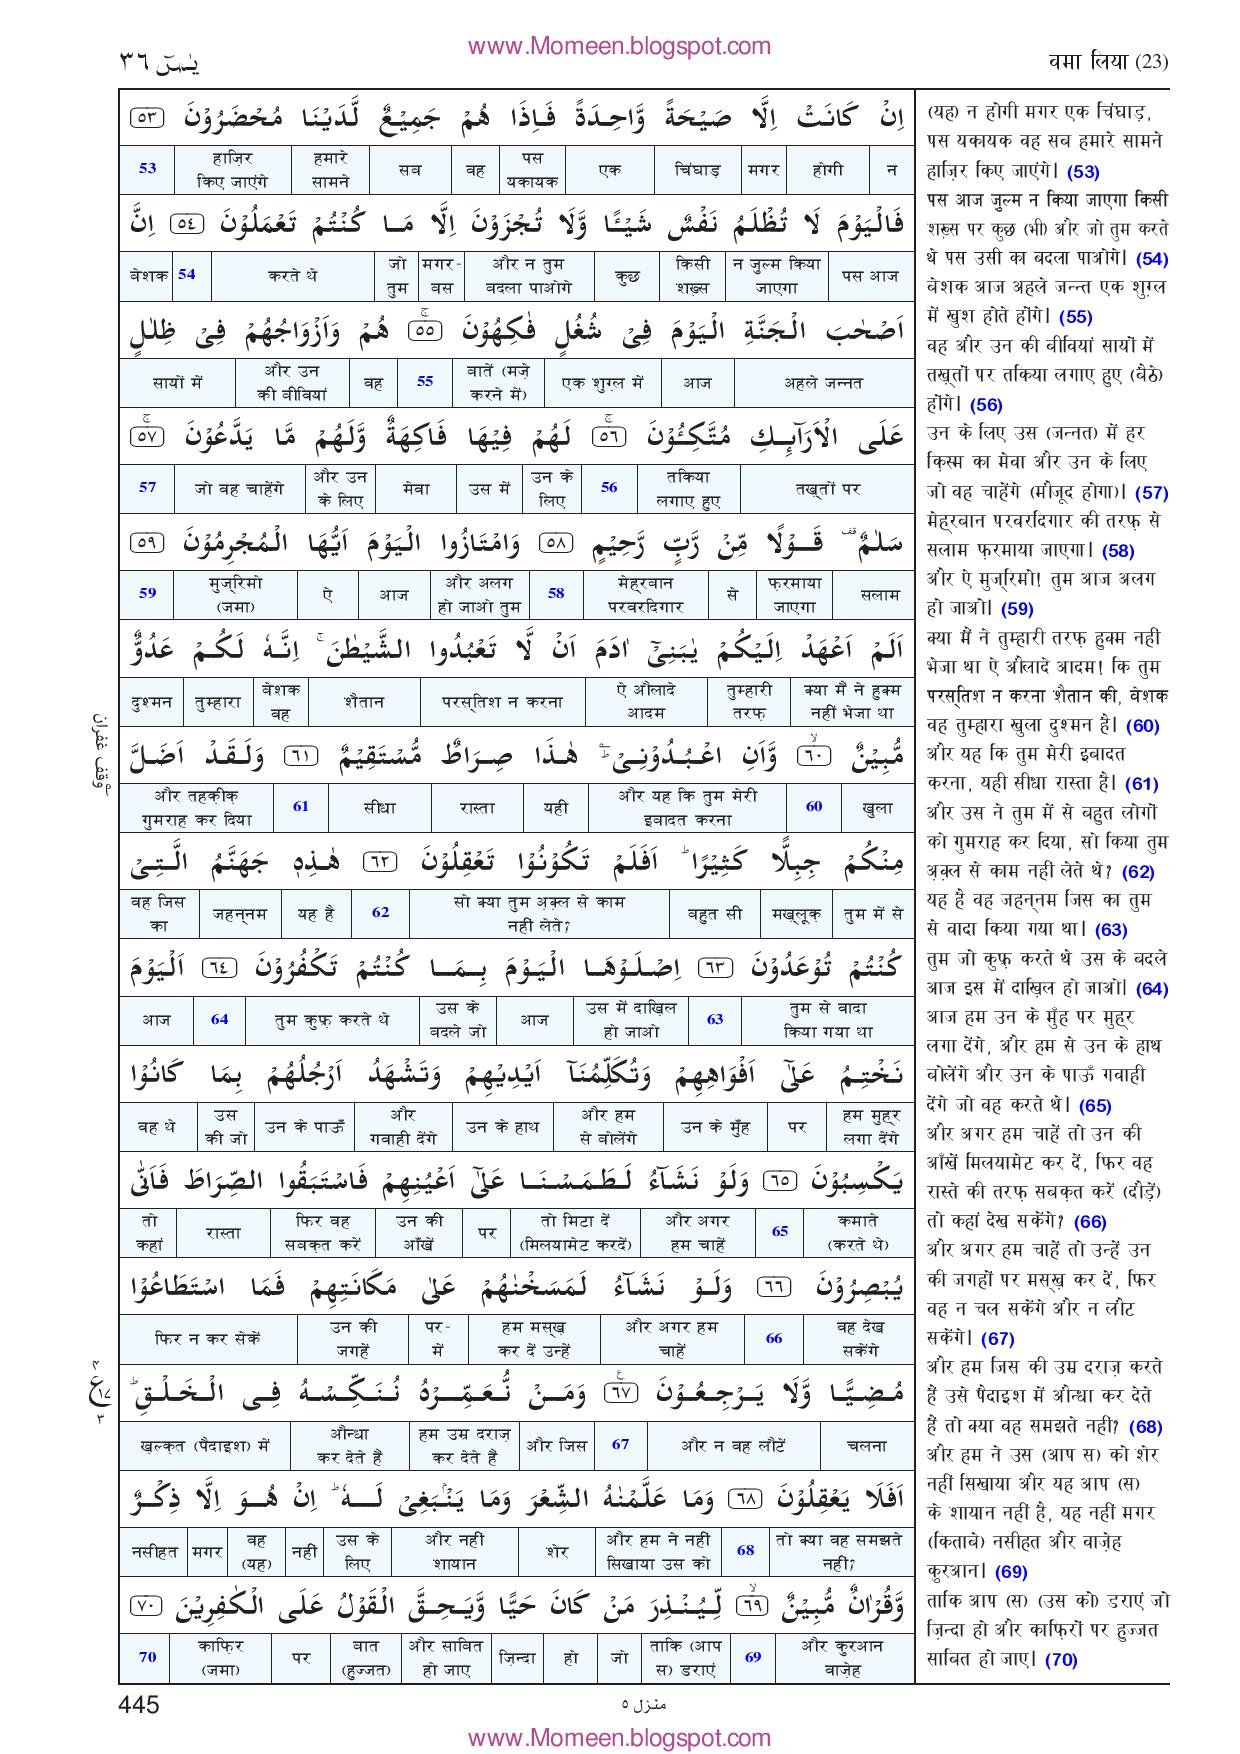 www.Momeen.blogspot.com
يٰسٓ ٣٦
वमा लिया (23)
اِنْ كَانَتْ اِلَّا صَيْحَةً وَّاحِدَةً فَاِذَا هُمْ جَمِيْعٌ لَّدَيْنَا مُحْضَرُوْنَ ٥٣
न होगी मगर चिंघाड़ एक पस यकायक वह सब हमारे सामने हाज़िर किए जाएंगे 53
فَالْيَوْمَ لَا تُظْلَمُ نَفْسٌ شَيْـًٔا وَّلَا تُجْزَوْنَ اِلَّا مَا كُنْتُمْ تَعْمَلُوْنَ ٥٤ اِنَّ
पस आज न जुल्म किया जाएगा किसी शख़्स कुछ और न तुम बदला पाओगे मगर-बस जो तुम करते थे 54 बेशक
اَصْحٰبَ الْجَنَّةِ الْيَوْمَ فِيْ شُغُلٍ فٰكِهُوْنَ ۚ ٥٥ هُمْ وَاَزْوَاجُهُمْ فِيْ ظِلٰلٍ
अहले जन्नत आज एक शुग़्ल में बातें (मज़े करने में) 55 वह और उन की बीवियां सायों में
عَلَى الْاَرَآئِكِ مُتَّكِـُٔوْنَ ۚ ٥٦ لَهُمْ فِيْهَا فَاكِهَةٌ وَّلَهُمْ مَّا يَدَّعُوْنَ ۚ ٥٧
तख़्तों पर तकिया लगाए हुए 56 उन के लिए उस में मेवा और उन के लिए जो वह चाहेंगे 57
سَلٰمٌ ۣ قَوْلًا مِّنْ رَّبٍّ رَّحِيْمٍ ٥٨ وَامْتَازُوا الْيَوْمَ اَيُّهَا الْمُجْرِمُوْنَ ٥٩
सलाम फ़रमाया जाएगा से मेह्रबान परवरदिगार 58 और अलग हो जाओ तुम आज ऐ मुज्रिमो (जमा) 59
اَلَمْ اَعْهَدْ اِلَيْكُمْ يٰبَنِيْٓ اٰدَمَ اَنْ لَّا تَعْبُدُوا الشَّيْطٰنَ ۚ اِنَّهٗ لَكُمْ عَدُوٌّ
क्या मैं ने हुक्म नहीं भेजा था तुम्हारी तरफ़ ऐ औलादे आदम परस्तिश न करना शैतान बेशक वह तुम्हारा दुश्मन
مُّبِيْنٌ ۙ ٦٠ وَّاَنِ اعْبُدُوْنِيْ ؔ هٰذَا صِرَاطٌ مُّسْتَقِيْمٌ ٦١ وَلَقَدْ اَضَلَّ
खुला 60 और यह कि तुम मेरी इबादत करना यही रास्ता सीधा 61 और तहक़ीक़ गुमराह कर दिया
وقف غفران
مِنْكُمْ جِبِلًّا كَثِيْرًا ؕ اَفَلَمْ تَكُوْنُوْا تَعْقِلُوْنَ ٦٢ هٰذِهٖ جَهَنَّمُ الَّتِيْ
तुम में से मख़्लूक़ बहुत सी सो क्या तुम अ़क़्ल से काम नहीं लेते? 62 यह है जहन्नम वह जिस का
كُنْتُمْ تُوْعَدُوْنَ ٦٣ اِصْلَوْهَا الْيَوْمَ بِمَا كُنْتُمْ تَكْفُرُوْنَ ٦٤ اَلْيَوْمَ
तुम से वादा किया गया था 63 उस में दाख़िल हो जाओ आज उस के बदले जो तुम कुफ़्र करते थे 64 आज
نَخْتِمُ عَلٰٓى اَفْوَاهِهِمْ وَتُكَلِّمُنَآ اَيْدِيْهِمْ وَتَشْهَدُ اَرْجُلُهُمْ بِمَا كَانُوْا
हम मुह्र लगा देंगे पर उन के मुँह और हम से बोलेंगे उन के हाथ और गवाही देंगे उन के पाऊँ उस की जो वह थे
يَكْسِبُوْنَ ٦٥ وَلَوْ نَشَآءُ لَطَمَسْنَا عَلٰٓى اَعْيُنِهِمْ فَاسْتَبَقُوا الصِّرَاطَ فَاَنّٰى
कमाते (करते थे) 65 और अगर हम चाहें तो मिटा दें (मिलयामेट करदें) पर उन की आँखें फिर वह सबक़त करें रास्ता तो कहां
يُبْصِرُوْنَ ٦٦ وَلَوْ نَشَآءُ لَمَسَخْنٰهُمْ عَلٰى مَكَانَتِهِمْ فَمَا اسْتَطَاعُوْا
वह देख सकेंगे 66 और अगर हम चाहें हम मस्ख़ कर दें उन्हें पर-में उन की जगहें फिर न कर सकें
مُضِيًّا وَّلَا يَرْجِعُوْنَ ۧ ٦٧ وَمَنْ نُّعَمِّرْهُ نُنَكِّسْهُ فِي الْخَلْقِ ؕ
चलना और न वह लौटें 67 और जिस हम उम्र दराज़ कर देते हैं औन्धा कर देते हैं ख़ल्क़त (पैदाइश) में
ع
١٧
٣
اَفَلَا يَعْقِلُوْنَ ٦٨ وَمَا عَلَّمْنٰهُ الشِّعْرَ وَمَا يَنْۢبَغِيْ لَهٗ ؕ اِنْ هُوَ اِلَّا ذِكْرٌ
तो क्या वह समझते नहीं? 68 और हम ने नहीं सिखाया उस को शेर और नहीं शायान उस के लिए नहीं वह (यह) मगर नसीहत
وَّقُرْاٰنٌ مُّبِيْنٌ ۙ ٦٩ لِّيُنْذِرَ مَنْ كَانَ حَيًّا وَّيَحِقَّ الْقَوْلُ عَلَى الْكٰفِرِيْنَ ٧٠
और कुरआन वाज़ेह 69 ताकि (आप स) डराएं जो हो ज़िन्दा और साबित हो जाए बात (हुज्जत) पर काफ़िर (जमा) 70
(यह) न होगी मगर एक चिंघाड़,
पस यकायक वह सब हमारे सामने
हाज़िर किए जाएंगे। (53)
पस आज जुल्म न किया जाएगा किसी
शख़्स पर कुछ (भी) और जो तुम करते
थे पस उसी का बदला पाओगे। (54)
बेशक आज अहले जन्नत एक शुग़्ल
में खुश होते होंगे। (55)
वह और उन की बीवियां सायों में
तख़्तों पर तकिया लगाए हुए (बैठे)
होंगे। (56)
उन के लिए उस (जन्नत) में हर
क़िस्म का मेवा और उन के लिए
जो वह चाहेंगे (मौजूद होगा)। (57)
मेह्रबान परवरदिगार की तरफ़ से
सलाम फ़रमाया जाएगा। (58)
और ऐ मुज्रिमो! तुम आज अलग
हो जाओ। (59)
क्या मैं ने तुम्हारी तरफ़ हुक्म नहीं
भेजा था ऐ औलादे आदम! कि तुम
परस्तिश न करना शैतान की, बेशक
वह तुम्हारा खुला दुश्मन है। (60)
और यह कि तुम मेरी इबादत
करना, यही सीधा रास्ता है। (61)
और उस ने तुम में से बहुत लोगों
को गुमराह कर दिया, सो किया तुम
अ़क़्ल से काम नहीं लेते थे? (62)
यह है वह जहन्नम जिस का तुम
से वादा किया गया था। (63)
तुम जो कुफ़्र करते थे उस के बदले
आज इस में दाख़िल हो जाओ। (64)
आज हम उन के मुँह पर मुह्र
लगा देंगे, और हम से उन के हाथ
बोलेंगे और उन के पाऊँ गवाही
देंगे जो वह करते थे। (65)
और अगर हम चाहें तो उन की
आँखें मिलयामेट कर दें, फिर वह
रास्ते की तरफ़ सबक़त करें (दौड़ें)
तो कहां देख सकेंगे? (66)
और अगर हम चाहें तो उन्हें उन
की जगहों पर मस्ख़ कर दें, फिर
वह न चल सकेंगे और न लौट
सकेंगे। (67)
और हम जिस की उम्र दराज़ करते
हैं उसे पैदाइश में औन्धा कर देते
हैं तो क्या वह समझते नहीं? (68)
और हम ने उस (आप स) को शेर
नहीं सिखाया और यह आप (स)
के शायान नहीं है, यह नहीं मगर
(किताबे) नसीहत और वाज़ेह
कुरआन। (69)
ताकि आप (स) (उस को) डराएं जो
ज़िन्दा हो और काफ़िरों पर हुज्जत
साबित हो जाए। (70)
445
منزل ٥
www.Momeen.blogspot.com